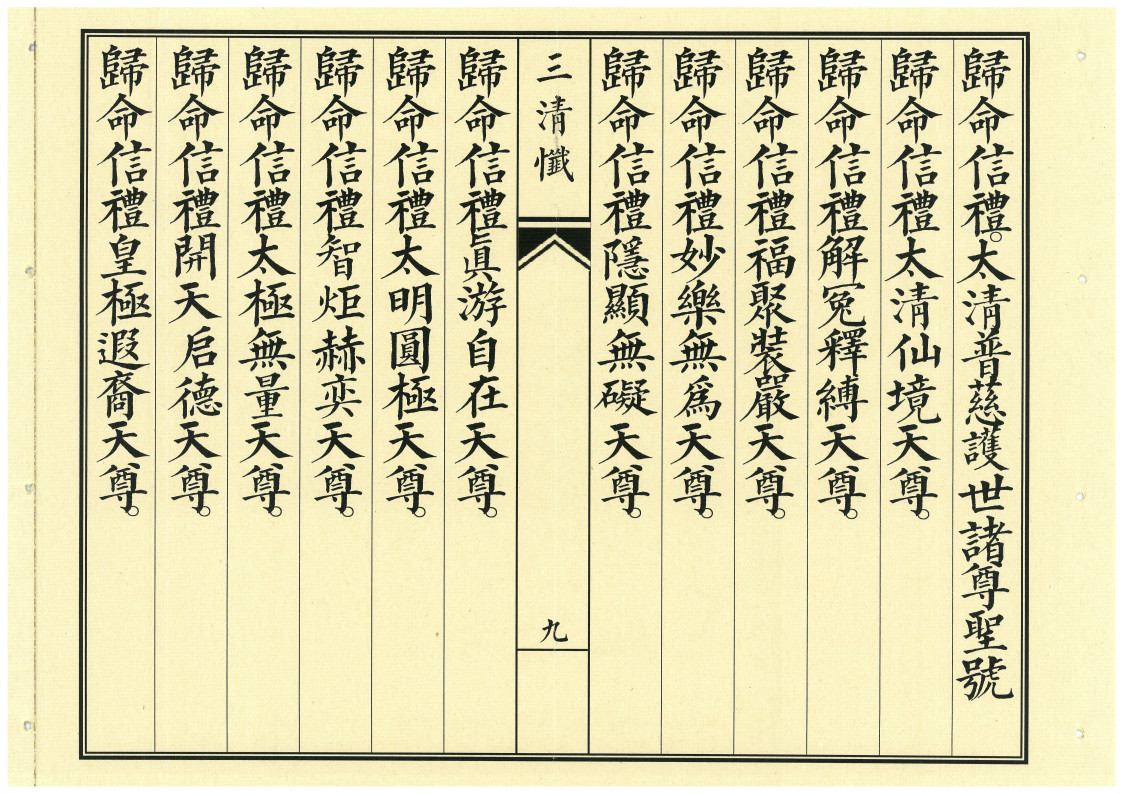 歸命信禮。太清普慈護世諸尊聖號
歸命信禮太清仙境天尊。
歸命信禮解冤釋縛天尊。
歸命信禮福聚裝嚴天尊。
歸命信禮妙樂無為天尊。
歸命信禮隱顯無礙天尊。
三清懺
九
歸命信禮眞游自在天尊。
歸命信禮太明圓極天尊。
歸命信禮智炬赫奕天尊。
歸命信禮太極無量天尊。
歸命信禮開天启德天尊。
歸命信禮皇極遐裔天尊。